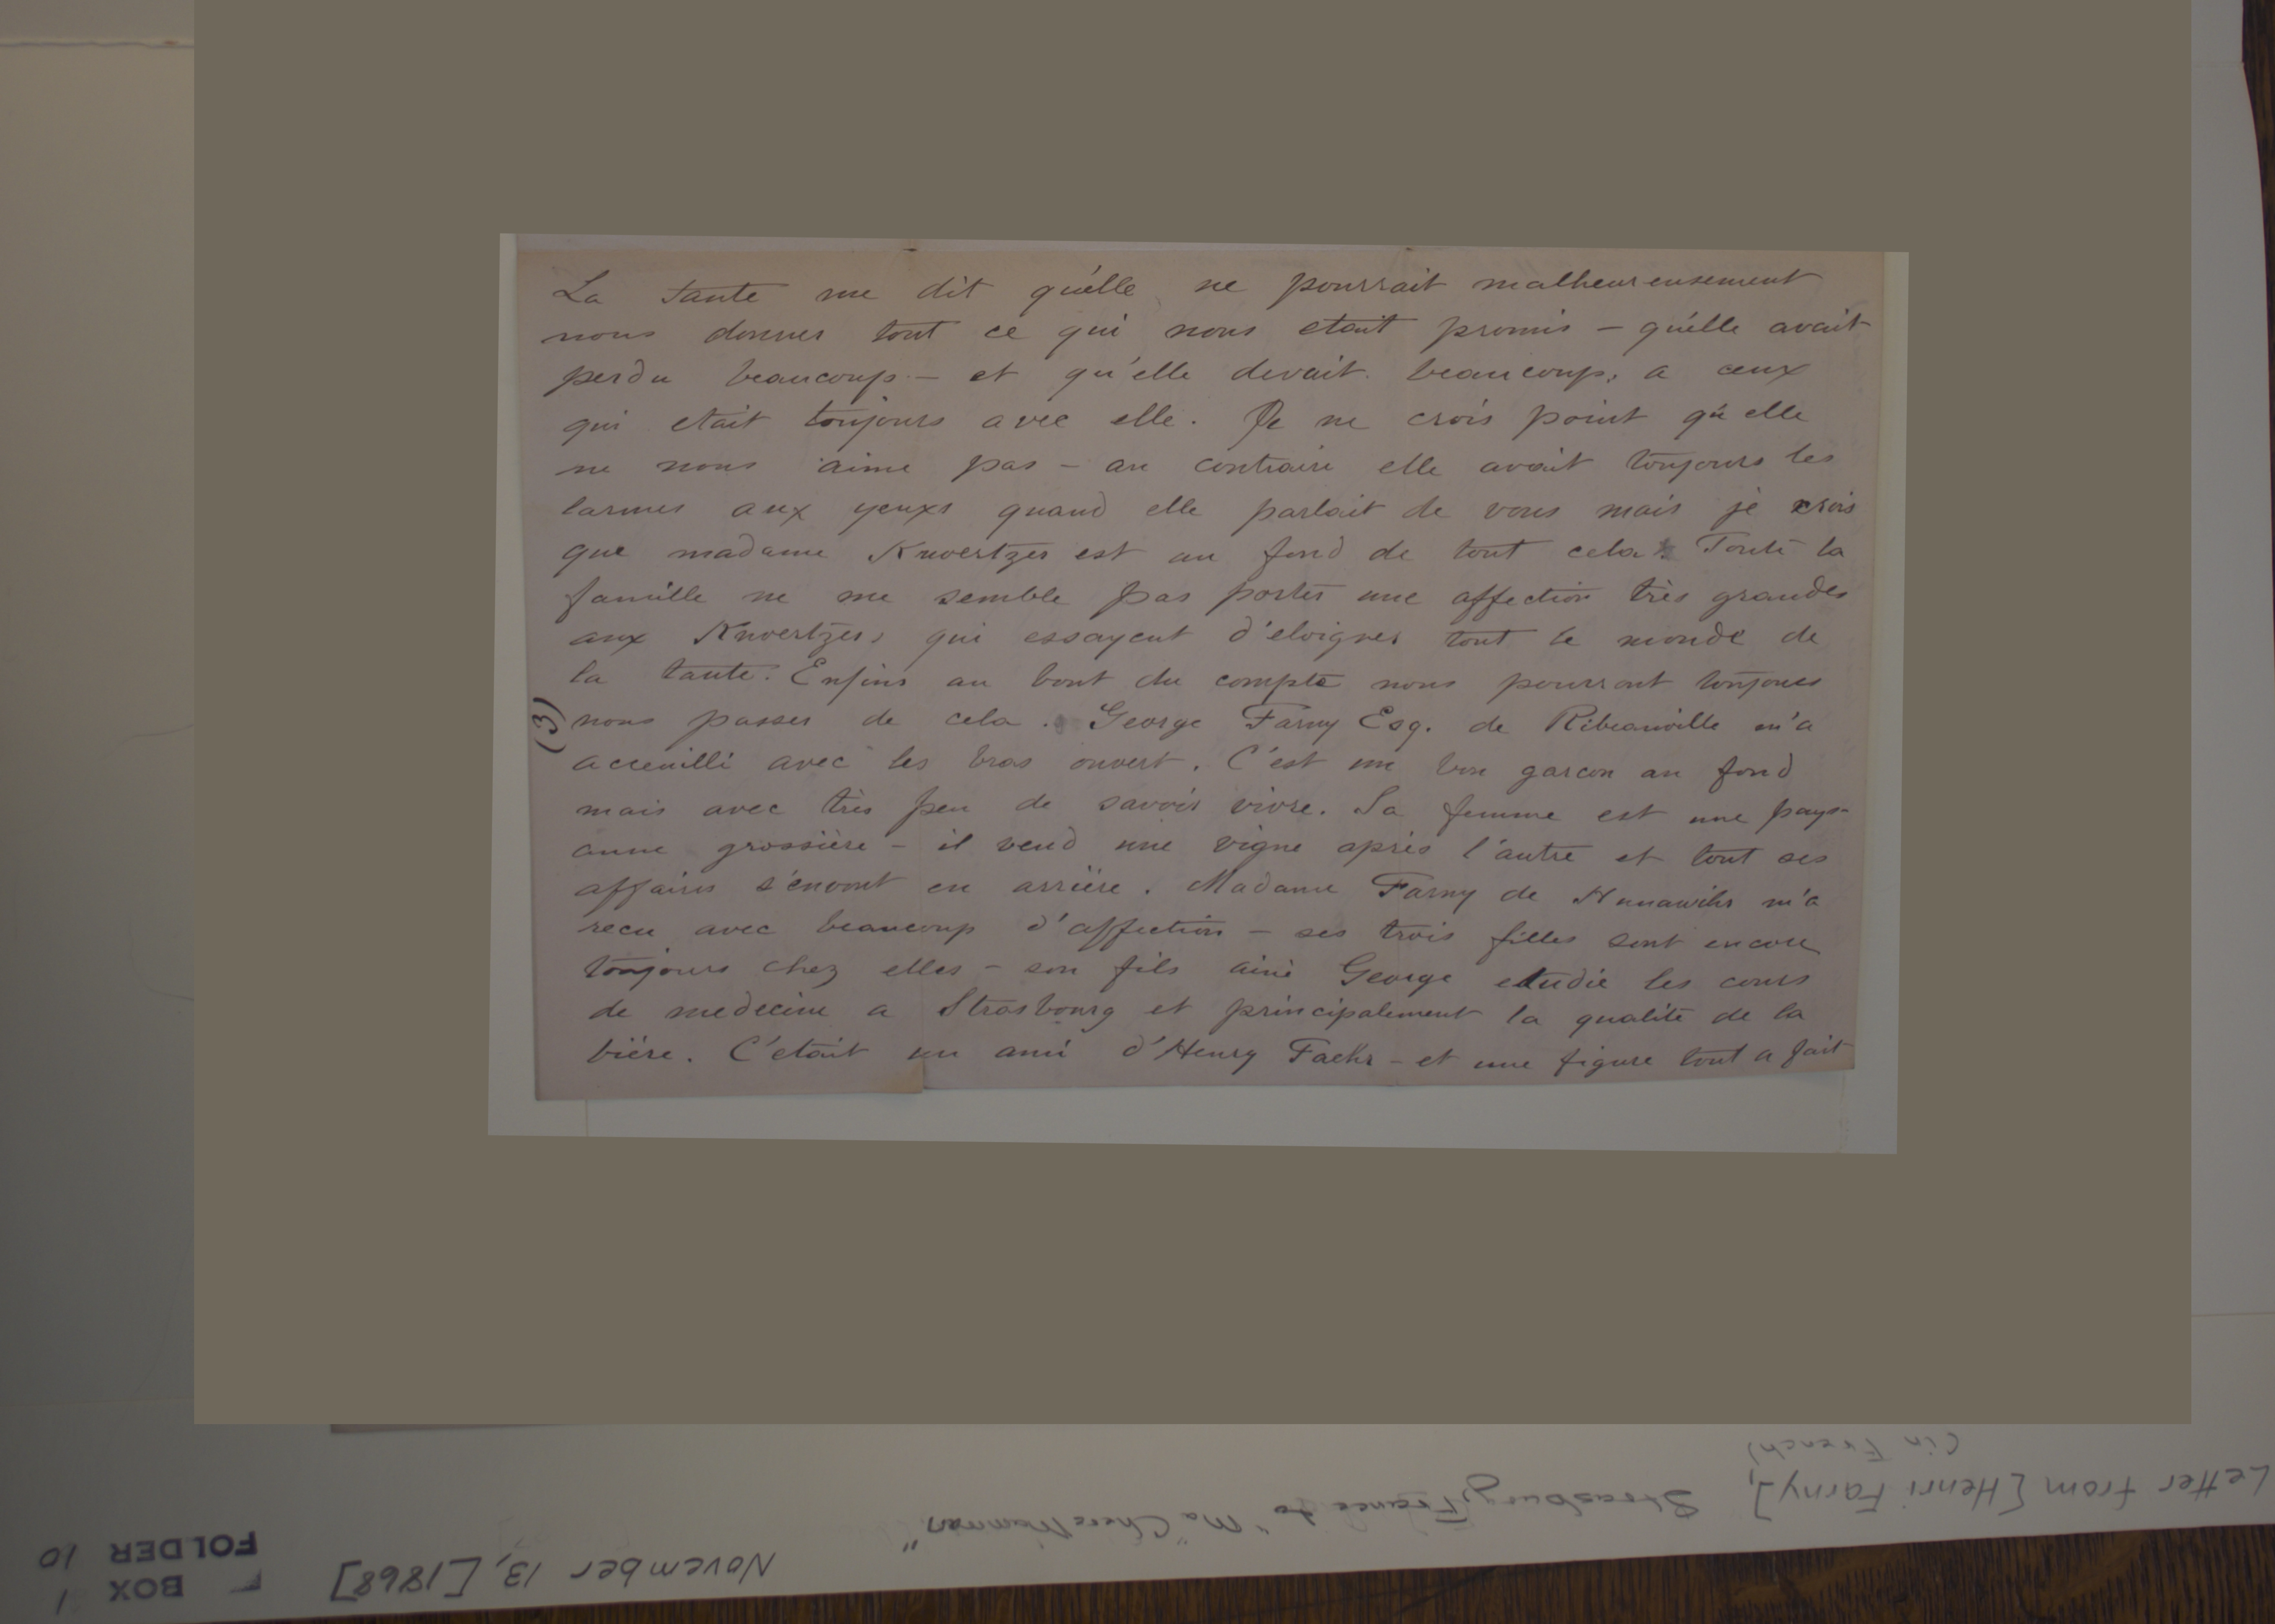 La tante me dit qu'elle ne pourrait malheureusement
nous donner tout ce qui nous etait promis — qu'elle avait
perdu beaucoup — et qu'elle devait beaucoup, a ceux
qui etait toujours avec elle. Je ne crois point qu'elle
ne nous aime pas — au contraire elle avait toujours les
larmes aux yeuxs quand elle parlait de vous mais je crois
que madame Kuvertzer est au fond de tout cela. Toute la
famille ne me semble pas porter une affection très grandes
aux Kuvertzers qui essayent d'eloigner tout le monde de
la tante. Enfins au bout du compte nous pourront toujours
(3)
nous passer de cela. George Farny Esq. de Ribeauville m'a
accueilli avec les bras ouvert. C'est un bon garcon au fond
mais avec très peu de savoir vivre. Sa femme est une pays-
anne grossière — il vend une vigne après l'autre et tout ses
affaires s'envont en arrière. Madame Farny de Hunawihr m'a
recu avec beaucoup d'affection — ses trois filles sont encore
toujours chez elles — son fils ainé George etudie les cours
de medecine a Strasbourg et principalement la qualité de la
bière. C'etait un ami d'Henry Faehr — et une figure tout a fait
(in French)
Letter from [Henri Farny], Strasbourg, France to "Ma Chere Maman"
November 13, [1868]
BOX 1
FOLDER 10